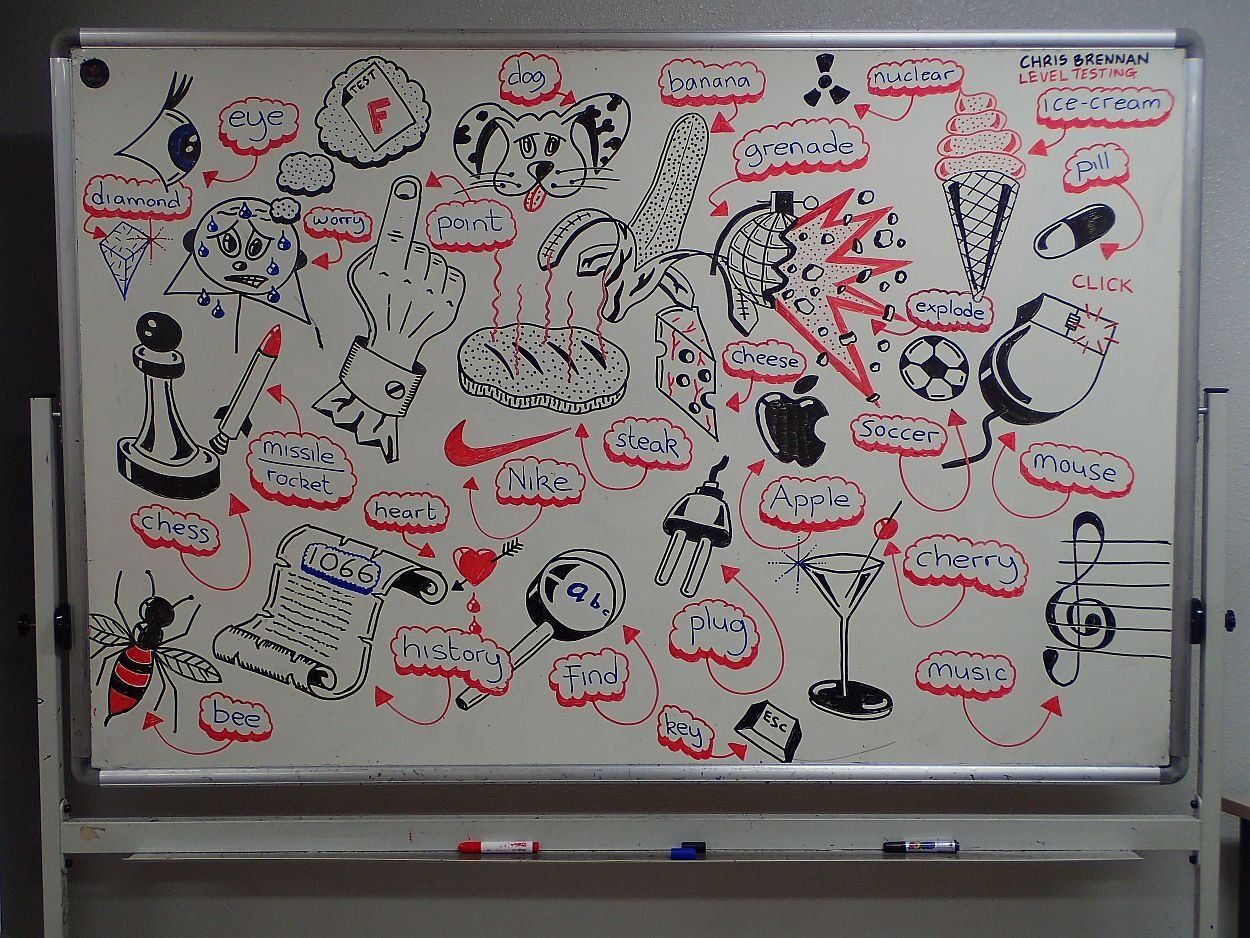 CHRIS BRENNAN
LEVEL TESTING
dog
banana
nuclear
ice-cream
TEST
F
eye
grenade
pill
diamond
worry
point
CLICK
explode
cheese
missile
rocket
steak
soccer
mouse
Nike
Apple
heart
chess
1066
cherry
abc
plug
history
Find
music
bee
key
ESC